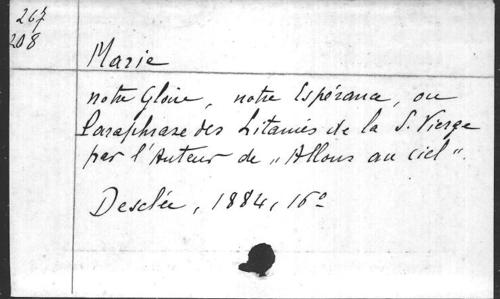 267
208
Marie
notre Gloire, notre Espérance, ou
Paraphrase des Litanies de la S. Vierge
par l'Auteur de „Allons au ciel".
Desclée, 1884, 16°